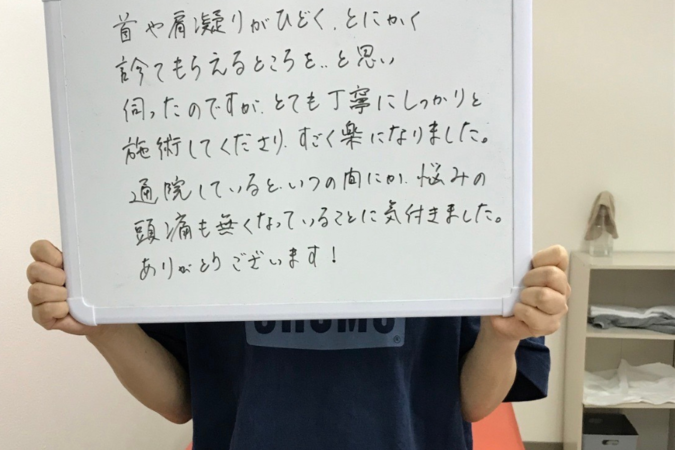 首や肩凝りがひどく、とにかく
診てもらえるところを..と思い
伺ったのですが、とても丁寧にしっかりと
施術してくださり、すごく楽になりました。
通院していると、いつの間にか、悩みの
頭痛も無くなっていることに気付きました。
ありがとうございます!
CHUMS
®